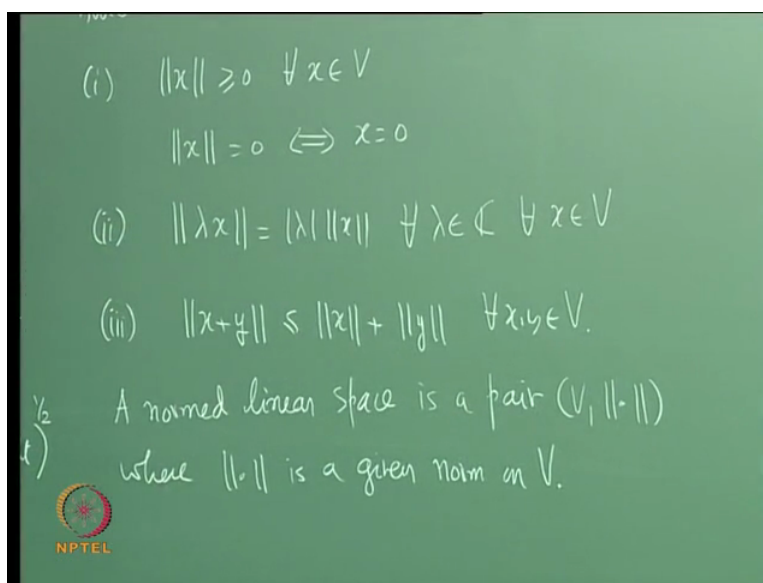 (i) ||x|| ⩾ 0 ∀ x ∈ V
||x|| = 0 ⟺ x = 0
(ii) ||λx|| = |λ| ||x|| ∀ λ ∈ ℂ ∀ x ∈ V
(iii) ||x+y|| ≤ ||x|| + ||y|| ∀ x, y ∈ V.
1/2
A normed linear space is a pair (V, ||·||)
t)
where ||·|| is a given norm on V.
NPTEL